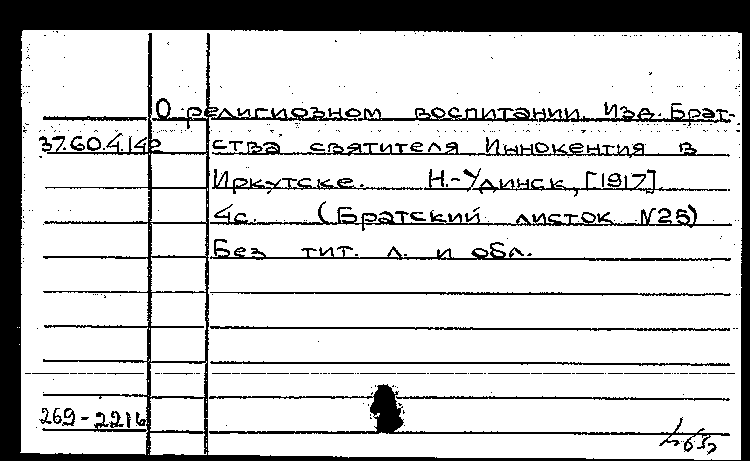 О религиозном воспитании. Изд. Брат-
37.60.4.142 ства святителя Иннокентия в
Иркутске. Н.-Удинск, [1917].
4с. (Братский листок №25)
Без тит. л. и обл.
269-2216